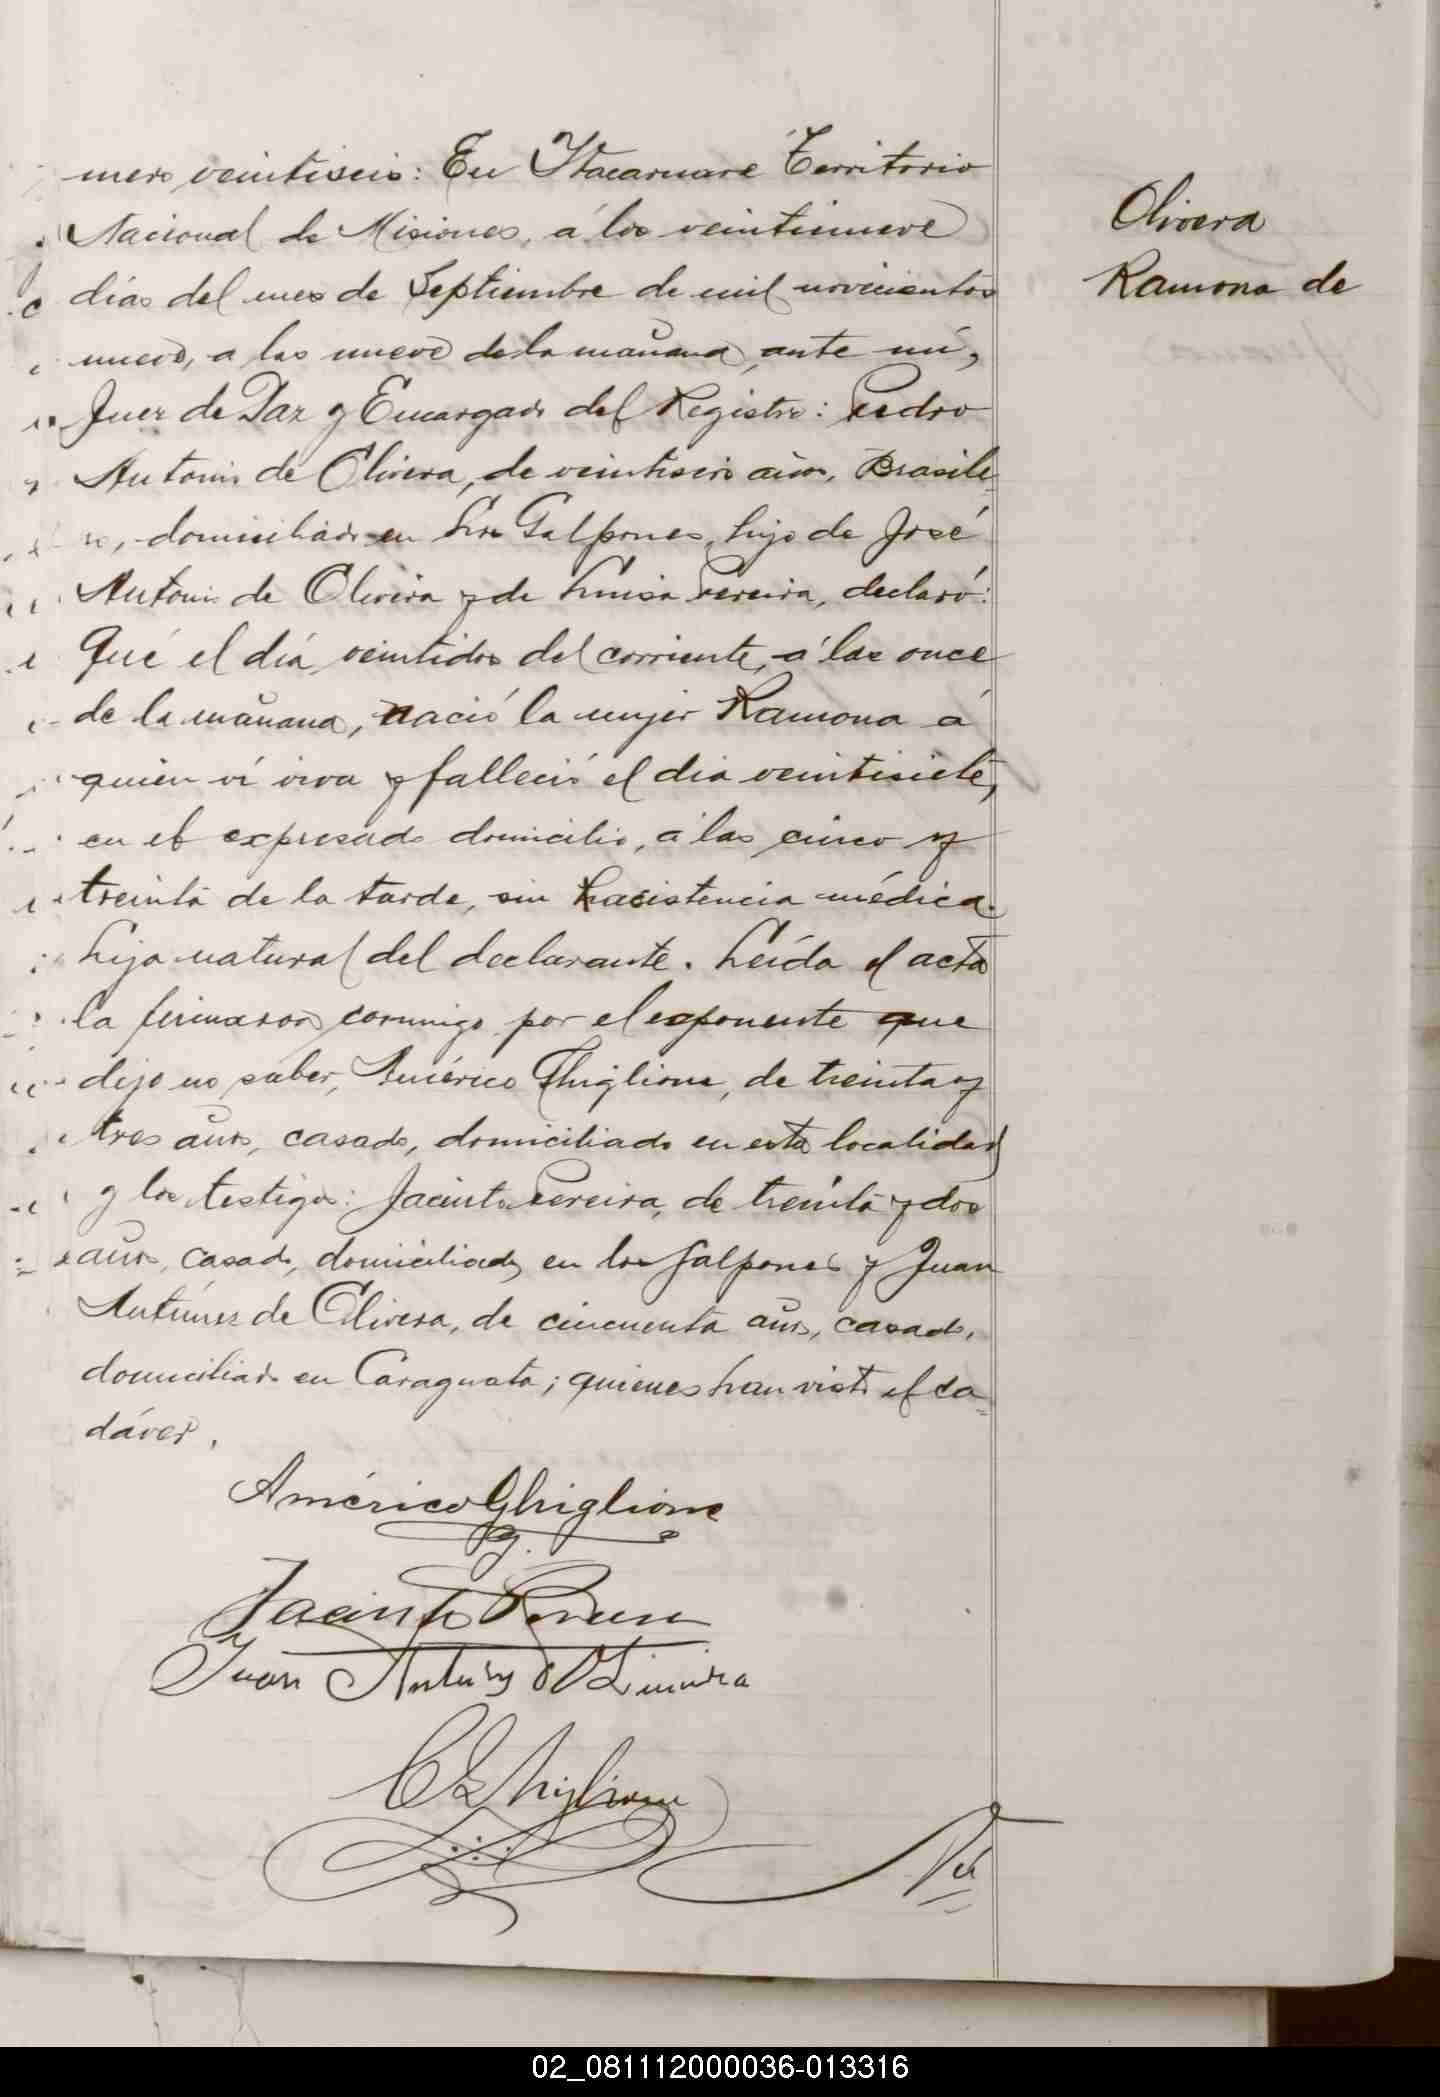 mero veintiseis: En Itacaruaré Territorio
Nacional de Misiones, á los veintinueve
días del mes de Septiembre de mil novecientos
nueve, a las nueve de la mañana, ante mí,
Juez de Paz y Encargado del Registro: Pedro
Antonio de Olivera, de veintiseis años, Brasile-
ro, domiciliado en Los Galpones, hijo de José
Antonio de Oliveira y de Luisa Pereira, declaró:
Qué el día veintidos del corriente, á las once
de la mañana, nació la mujer Ramona á
quien ví viva y falleció el dia veintisiete,
en el expresado domicilio, á las cinco y
treinta de la tarde, sin asistencia médica.
hija natural del declarante. Leída el acta
la firmaron conmigo por el exponente que
dijo no saber, Américo Ghiglione, de treinta y
tres años, casado, domiciliado en esta localidad
y los testigos: Jacinto Pereira, de treinta y dos
años, casado, domiciliado en los Galpones y Juan
Antúnez de Olivera, de cincuenta años, casado,
domiciliado en Caraguata; quienes han visto el ca-
dáver.
Américo Ghiglione
Jacinto Pereira
Juan Antunes d Oliveira
C Ghiglione
Nú
Olivera
Ramona de
02_081112000036-013316